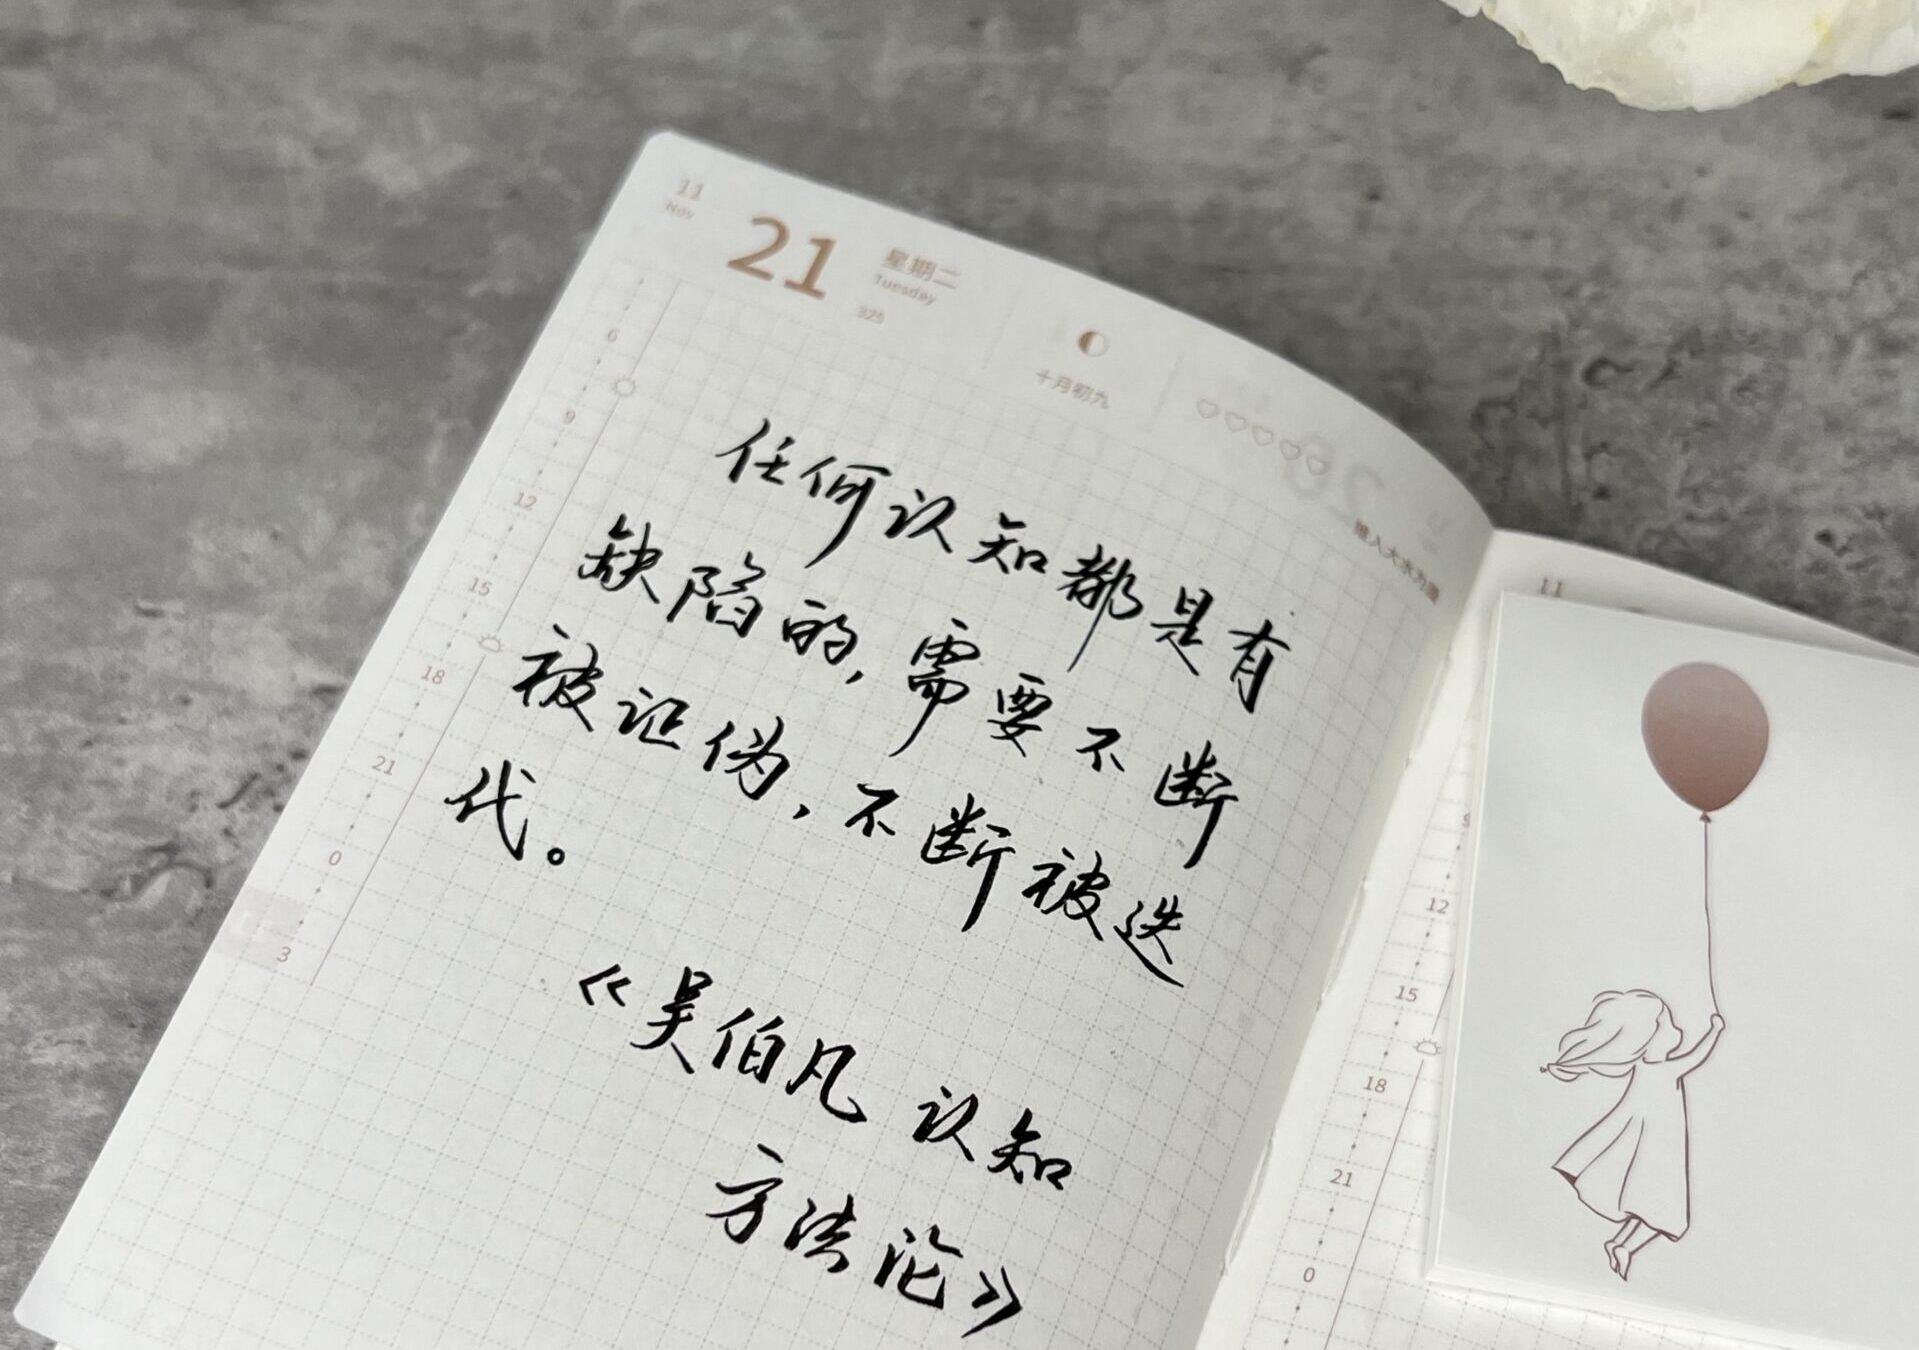 11
Nov
21
星期二
Tuesday
325
十月初九
6
9
12
15
18
21
0
3
任何认知都是有
缺陷的,需要不断
被证伪,不断被迭
代。
《吴伯凡 认知
方法论》
11
12
15
18
21
0